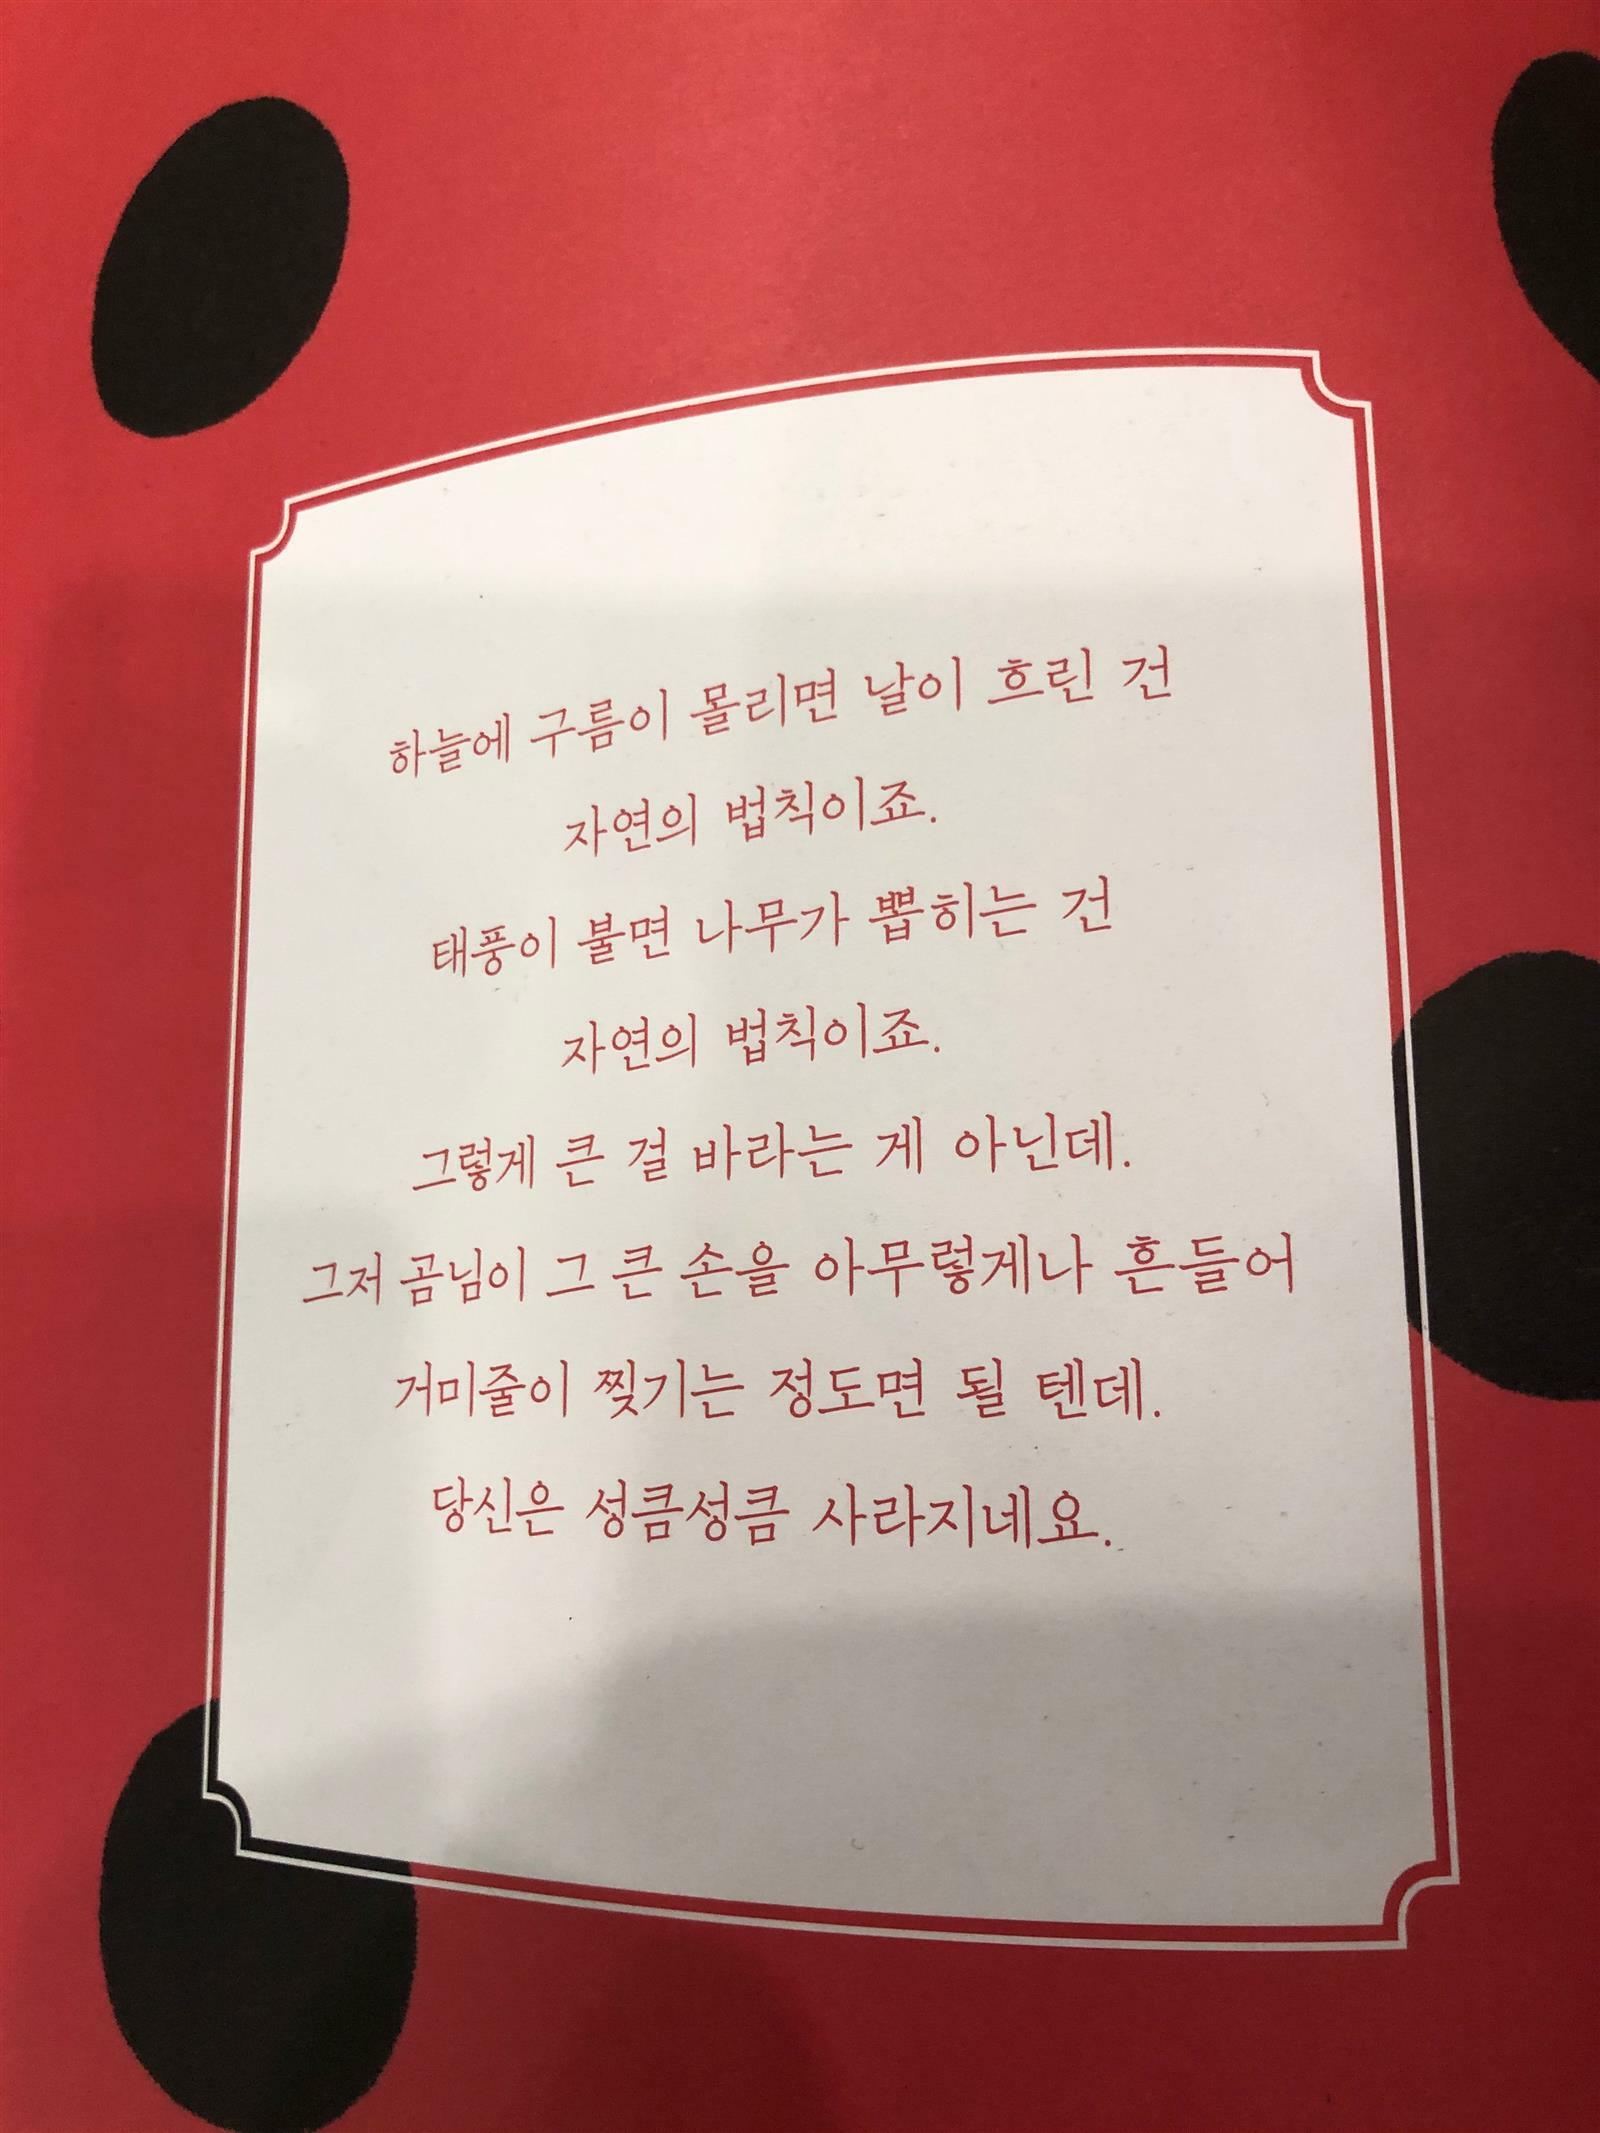 하늘에 구름이 몰리면 날이 흐린 건
자연의 법칙이죠.
태풍이 불면 나무가 뽑히는 건
자연의 법칙이죠.
그렇게 큰 걸 바라는 게 아닌데.
그저 곰님이 그 큰 손을 아무렇게나 흔들어
거미줄이 찢기는 정도면 될 텐데.
당신은 성큼성큼 사라지네요.